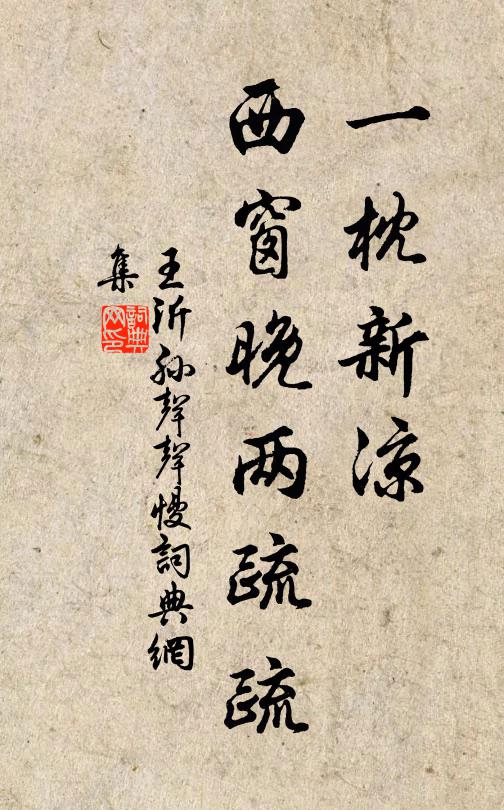 一枕新涼
西窗晚雨疏疏
王沂孫聲聲慢詞典網
集
詞典
网印